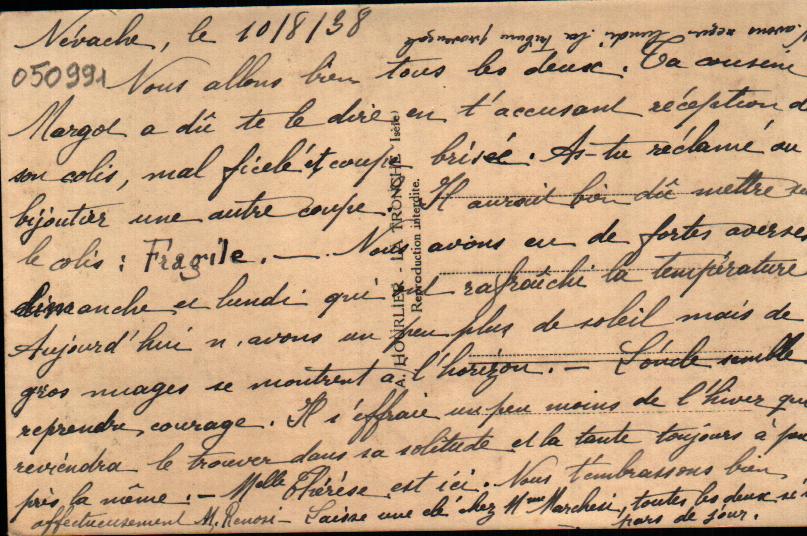 Névache, le 10/8/38
050991
Nous allons bien tous les deux. Ta cousine
Margot a dû te le dire en t'accusant réception d
son colis, mal ficelé et coupe brisée. As-tu réclamé au
bijoutier une autre coupe. Il aurait bien dû mettre su
le colis : Fragile. — Nous avons eu de fortes averses
dimanche et lundi qui ont rafraîchi la température
Aujourd'hui n. avons un peu plus de soleil mais de
gros nuages se montrent à l'horizon. — L'oncle semble
reprendre courage. Il s'effraie un peu moins de l'hiver qui
reviendra le trouver dans sa solitude et la tante toujours à peu
près la même. — Melle Thérèse est ici. Nous t'embrassons bien
affectueusement M. — Laisse une clé chez Mme Marchesi, toutes les deux si
pars de jour.
avons reçu lundi la provençale
A. HOURLIER - LA TRONCHE (Isère)
Reproduction interdite.